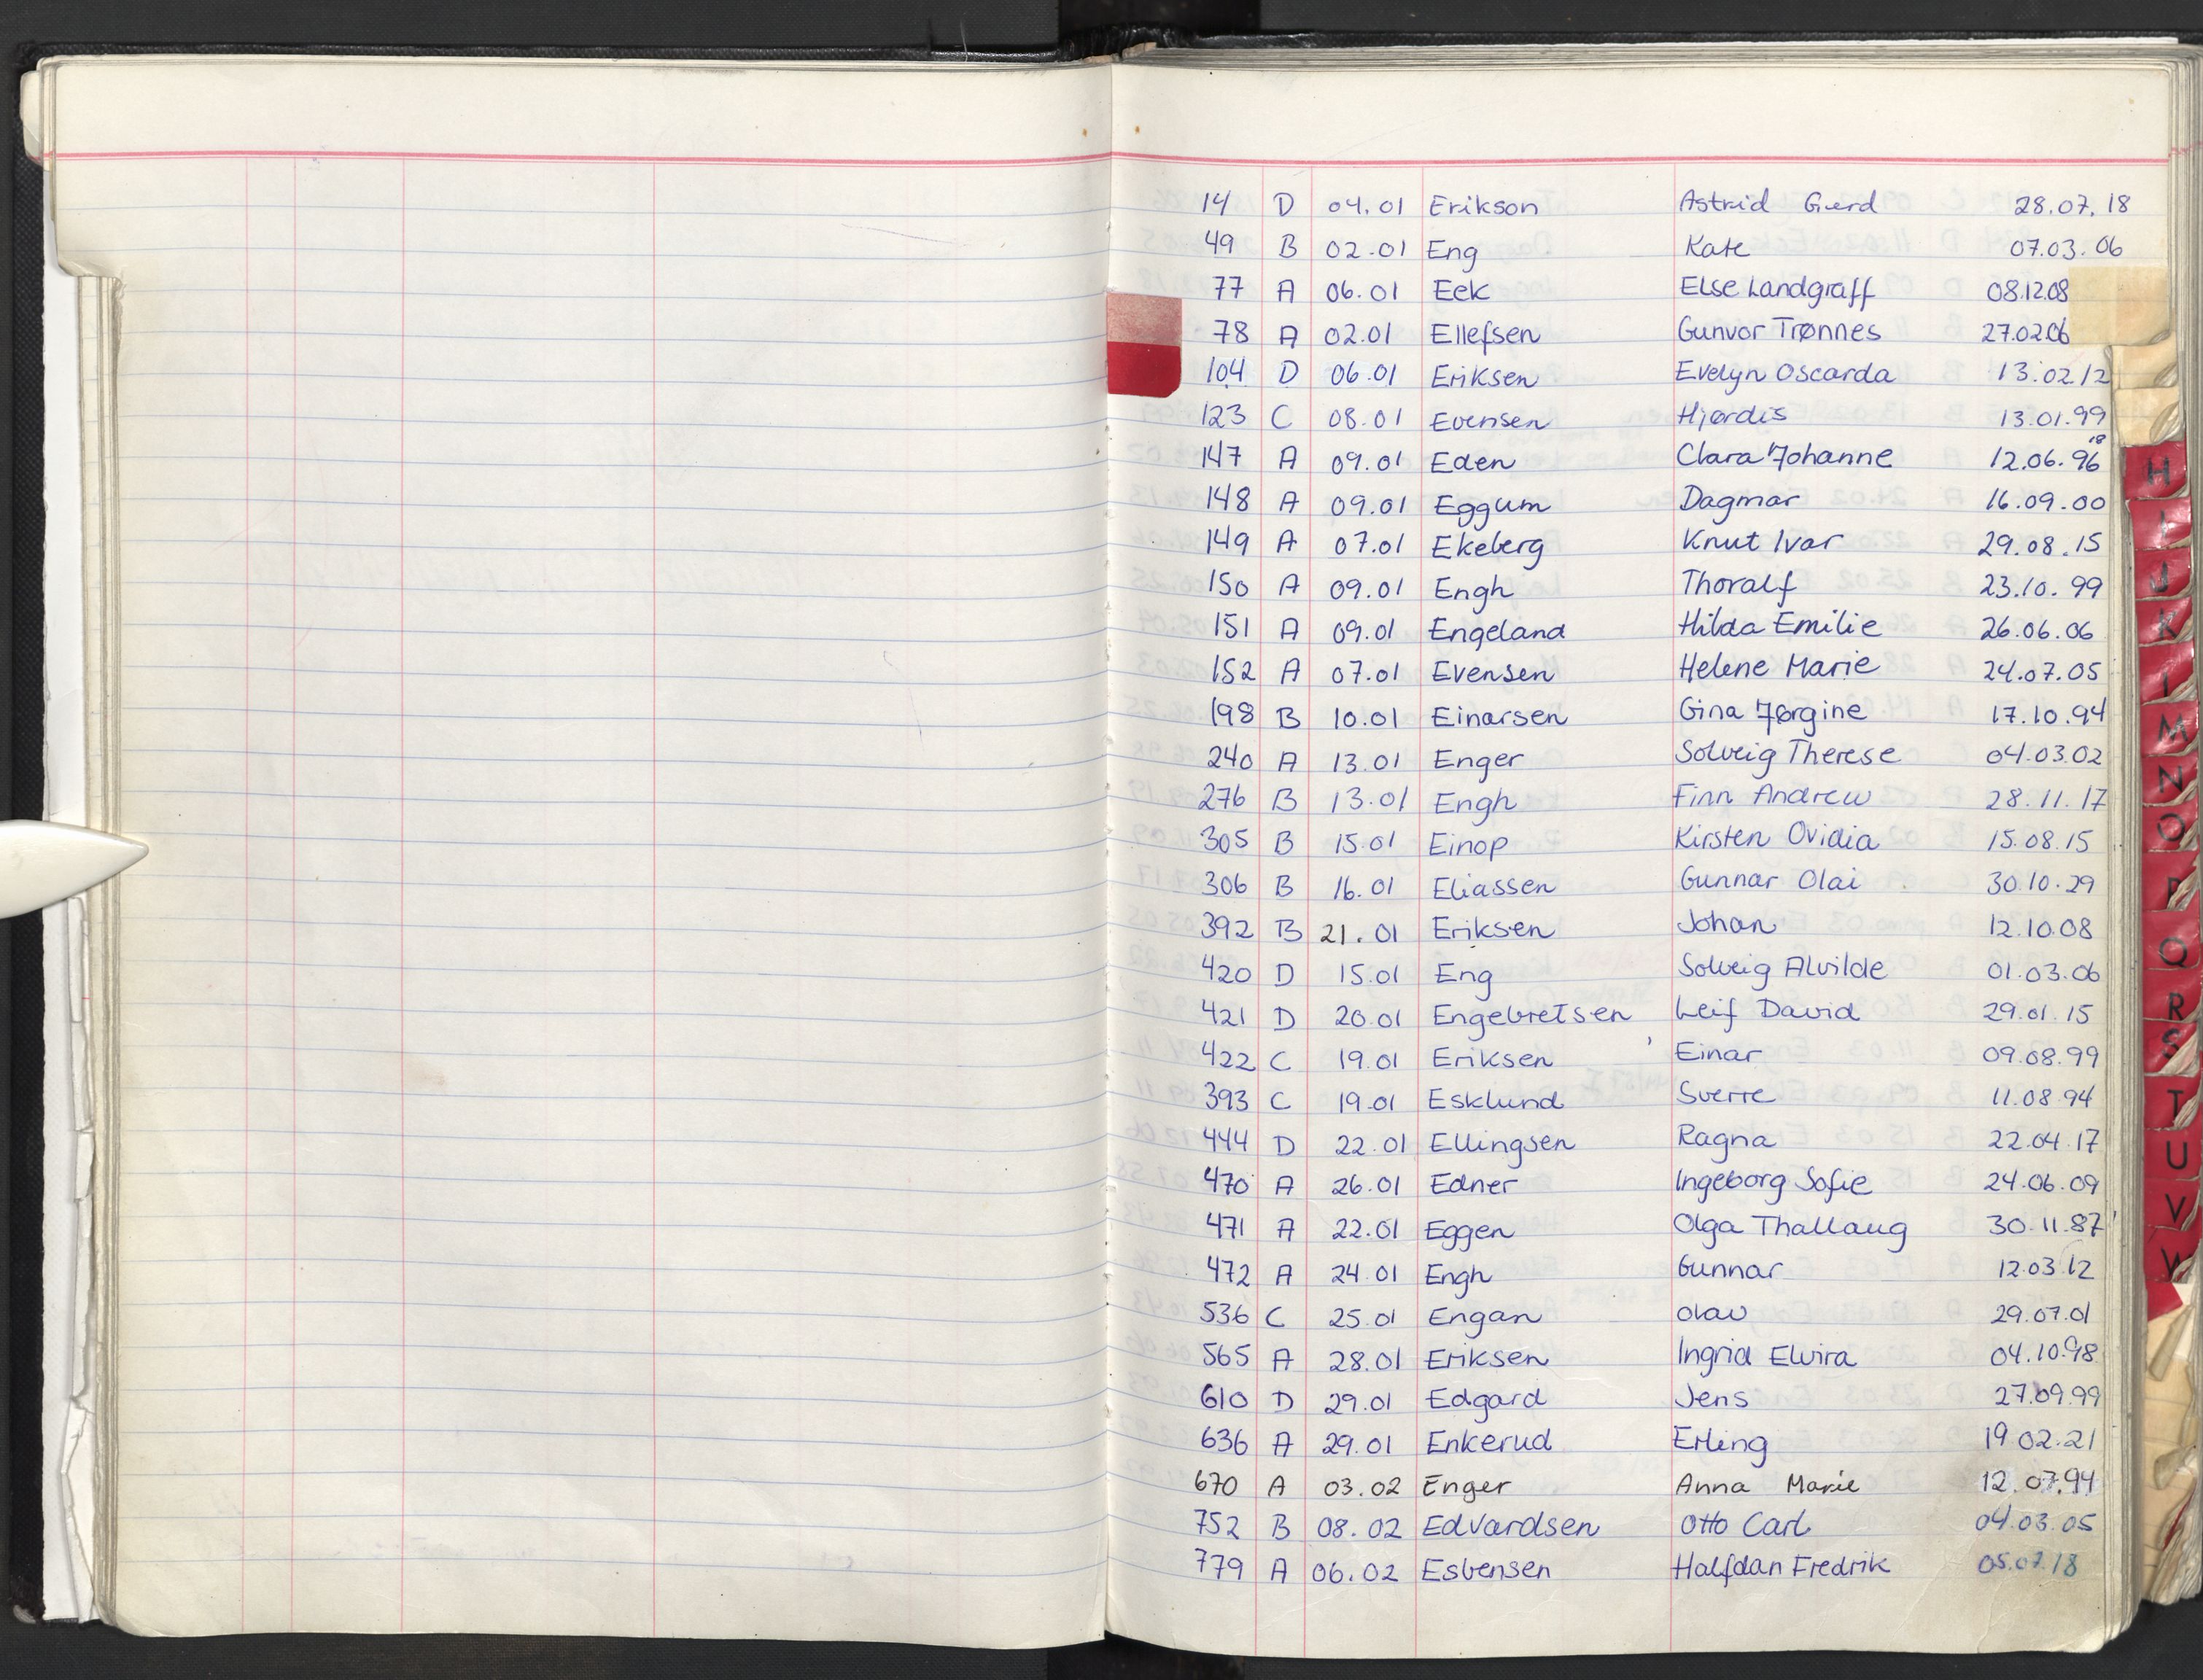 14 D 04.01 Erikson Astrid Gerd 28.07.18
49 B 02.01 Eng Kate 07.03.06
77 A 06.01 Eek Else Landgraff 08.12.08
78 A 02.01 Ellefsen Gunvor Trønnes 27.02.06
104 D 06.01 Eriksen Evelyn Oscarda 13.02.12
123 C 08.01 Evensen Hjørdis 13.01.99
147 A 09.01 Eden Clara Johanne 12.06.96 18
148 A 09.01 Eggum Dagmar 16.09.00
149 A 07.01 Ekeberg Knut Ivar 29.08.15
150 A 09.01 Engh Thoralf 23.10.99
151 A 09.01 Engeland Hilda Emilie 26.06.06
152 A 07.01 Evensen Helene Marie 24.07.05
198 B 10.01 Einarsen Gina Jørgine 17.10.94
240 A 13.01 Enger Solveig Therese 04.03.02
276 B 13.01 Engh Finn Andrew 28.11.17
305 B 15.01 Einop Kirsten Ovidia 15.08.15
306 B 16.01 Eliassen Gunnar Olai 30.10.29
392 B 21.01 Eriksen Johan 12.10.08
420 D 15.01 Eng Solveig Alvilde 01.03.06
421 D 20.01 Engebretsen Leif David 29.01.15
422 C 19.01 Eriksen Einar 09.08.99
393 C 19.01 Esklund Sverre 11.08.94
444 D 22.01 Ellingsen Ragna 22.04.17
470 A 26.01 Edner Ingeborg Sofie 24.06.09
471 A 22.01 Eggen Olga Thallaug 30.11.87
472 A 24.01 Engh Gunnar 12.03.12
536 C 25.01 Engan Olav 29.07.01
565 A 28.01 Eriksen Ingrid Elvira 04.10.98
610 D 29.01 Edgard Jens 27.09.99
636 A 29.01 Enkerud Erling 19 02.21
670 A 03.02 Enger Anna Marie 12.07.94
752 B 08.02 Edvardsen Otto Carl 04.03.05
779 A 06.02 Esbensen Halfdan Fredrik 05.07.18
H
I
J
K
L
M
N
O
P
Q
R
S
T
U
V
W